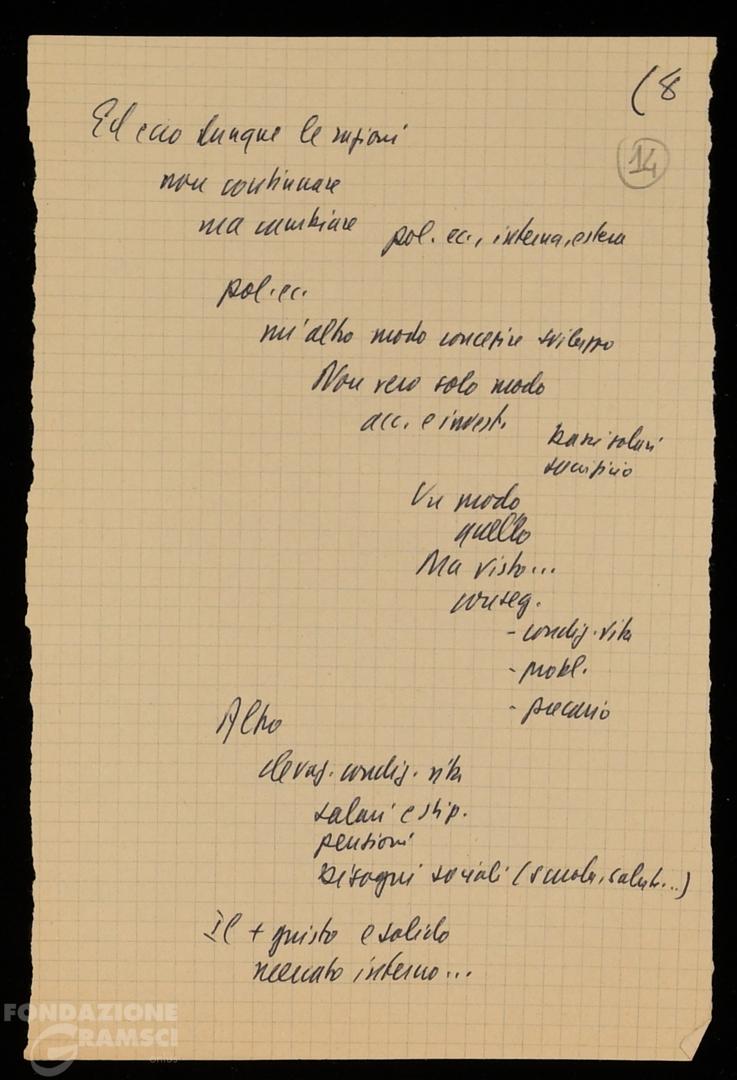 (8
14
Ed ecco dunque le ragioni
non continuare
ma cambiare pol. ec., interna, estera
pol. ec.
un'altro modo concepire sviluppo
Non vero solo modo
acc. e invest.
bassi salari
sacrificio
Un modo
quello
Ma visto...
conseg.
- condiz. vita
- probl.
- precario
Altro
elevaz. condiz. vita
salari e stip.
pensioni
bisogni sociali (scuola, salute...)
Il + giusto e solido
mercato interno...
FONDAZIONE
GRAMSCI
onlus